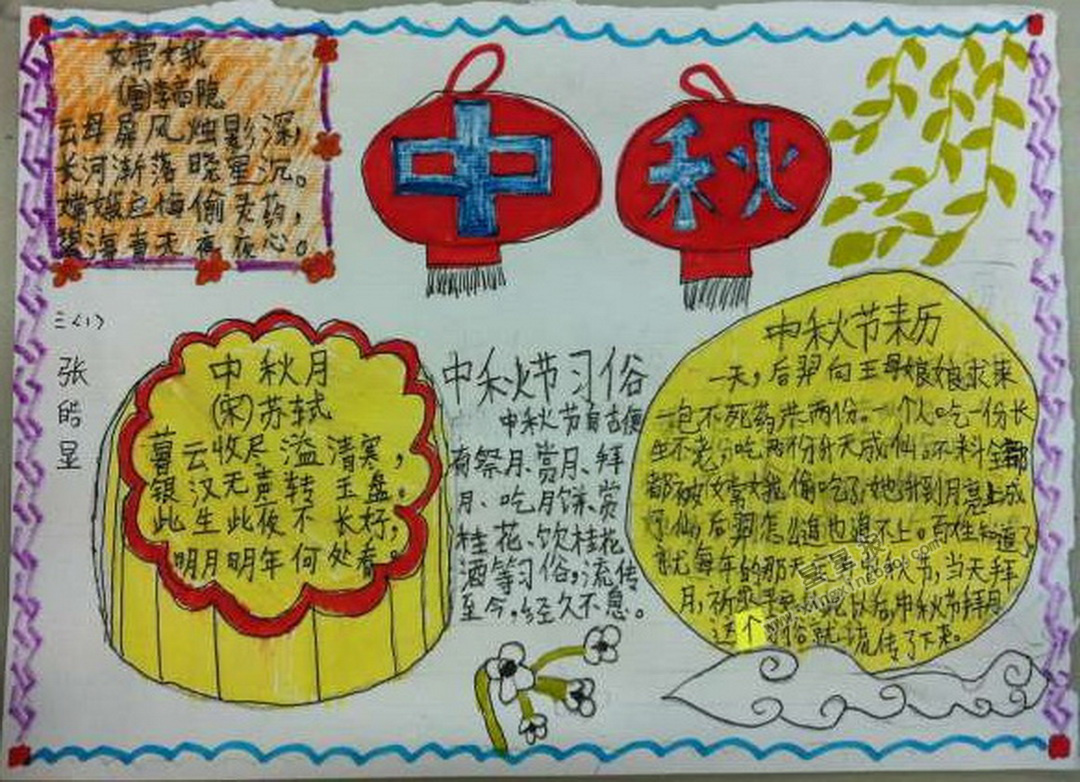 嫦娥
(唐)李商隐
云母屏风烛影深,
长河渐落晓星沉。
嫦娥应悔偷灵药,
碧海青天夜夜心。
中秋
三(1)
张
皓
中秋月
(宋)苏轼
暮云收尽溢清寒,
银汉无声转玉盘。
此生此夜不长好,
明月明年何处看。
中秋节习俗
中秋节自古便
有祭月、赏月、拜
月、吃月饼、赏
桂花、饮桂花
酒等习俗,流传
至今,经久不息。
中秋节来历
一天,后羿向王母娘娘求来
一包不死药共两份。一个人吃一份长
生不老,吃两份升天成仙。不料全都
都被嫦娥偷吃了,她升到月亮上成
了仙,后羿怎么追也追不上。百姓知道了
就每年的那天 中秋节,当天拜
月,祈 以后中秋节拜月
这个习俗就流传了下来。